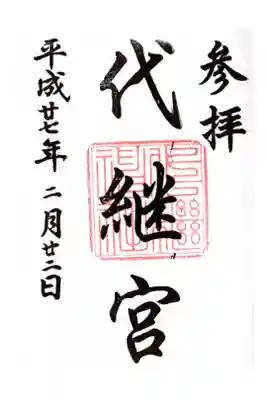 参拝
代継宮
平成廿七年二月廿二日